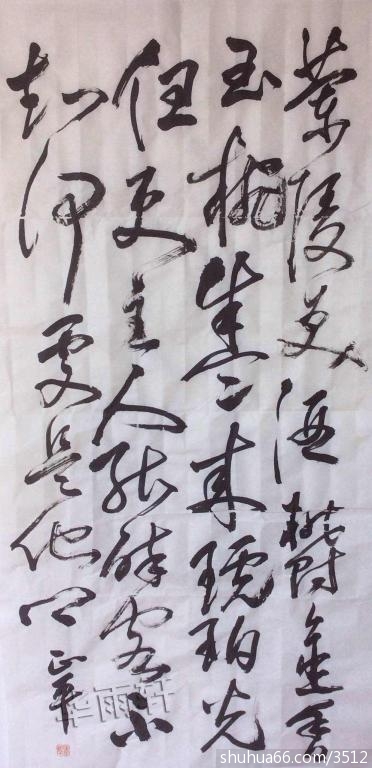 蘭陵美酒鬱金香
玉椀盛来琥珀光
但使主人能醉客不
知何处是他乡
shuhua66.com/3512